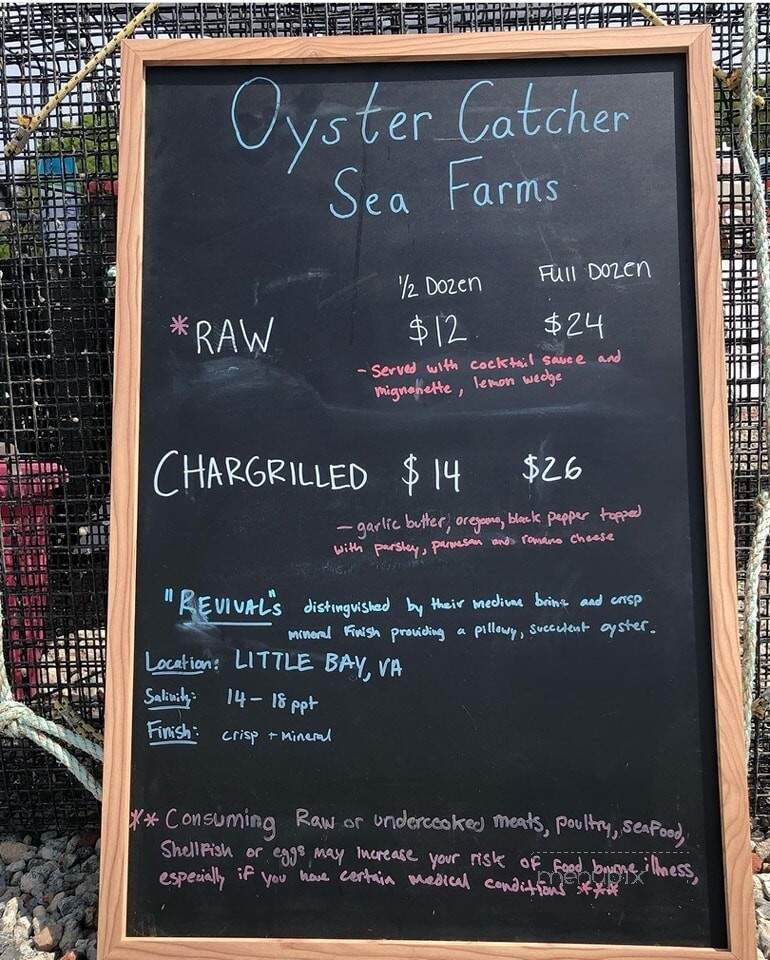 Oyster Catcher
Sea Farms
1/2 Dozen Full Dozen
*RAW $12 $24
- Served with cocktail sauce and
mignonette, lemon wedge
CHARGRILLED $14 $26
- garlic butter, oregano, black pepper topped
with parsley, parmesan and romano cheese
"REVIVAL"s distinguished by their medium brine and crisp
mineral finish providing a pillowy, succulent oyster.
Location: LITTLE BAY, VA
Salinity: 14 - 18 ppt
Finish: crisp + mineral
** Consuming Raw or undercooked meats, poultry, seafood,
Shellfish or eggs may increase your risk of food bourne illness,
especially if you have certain medical conditions ***
menupix